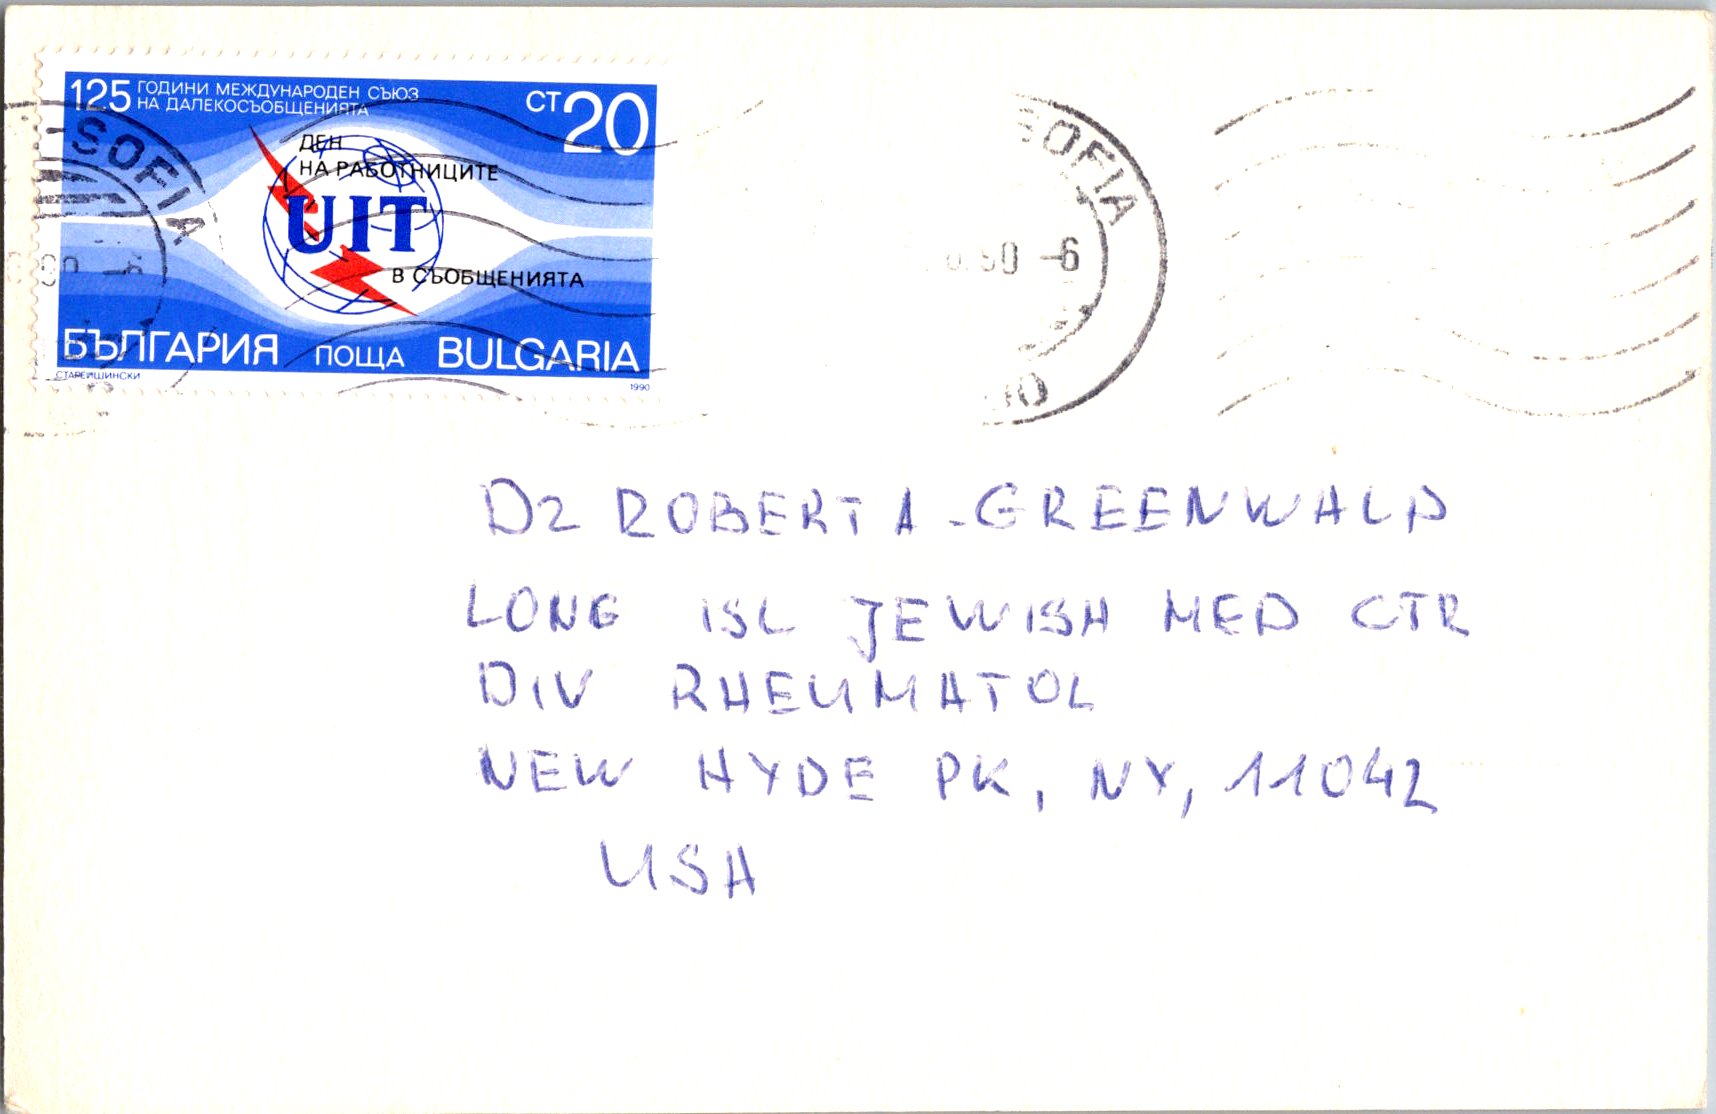 125 ГОДИНИ МЕЖДУНАРОДЕН СЪЮЗ
НА ДАЛЕКОСЪОБЩЕНИЯТА
СТ 20
ДЕН
НА РАБОТНИЦИТЕ
UIT
В СЪОБЩЕНИЯТА
БЪЛГАРИЯ ПОЩА BULGARIA
СТАРЕЙШИНСКИ 1990
SOFIA
SOFIA
Dr ROBERT A. GREENWALD
LONG ISL JEWISH MED CTR
DIV RHEUMATOL
NEW HYDE PK, NY, 11042
USA